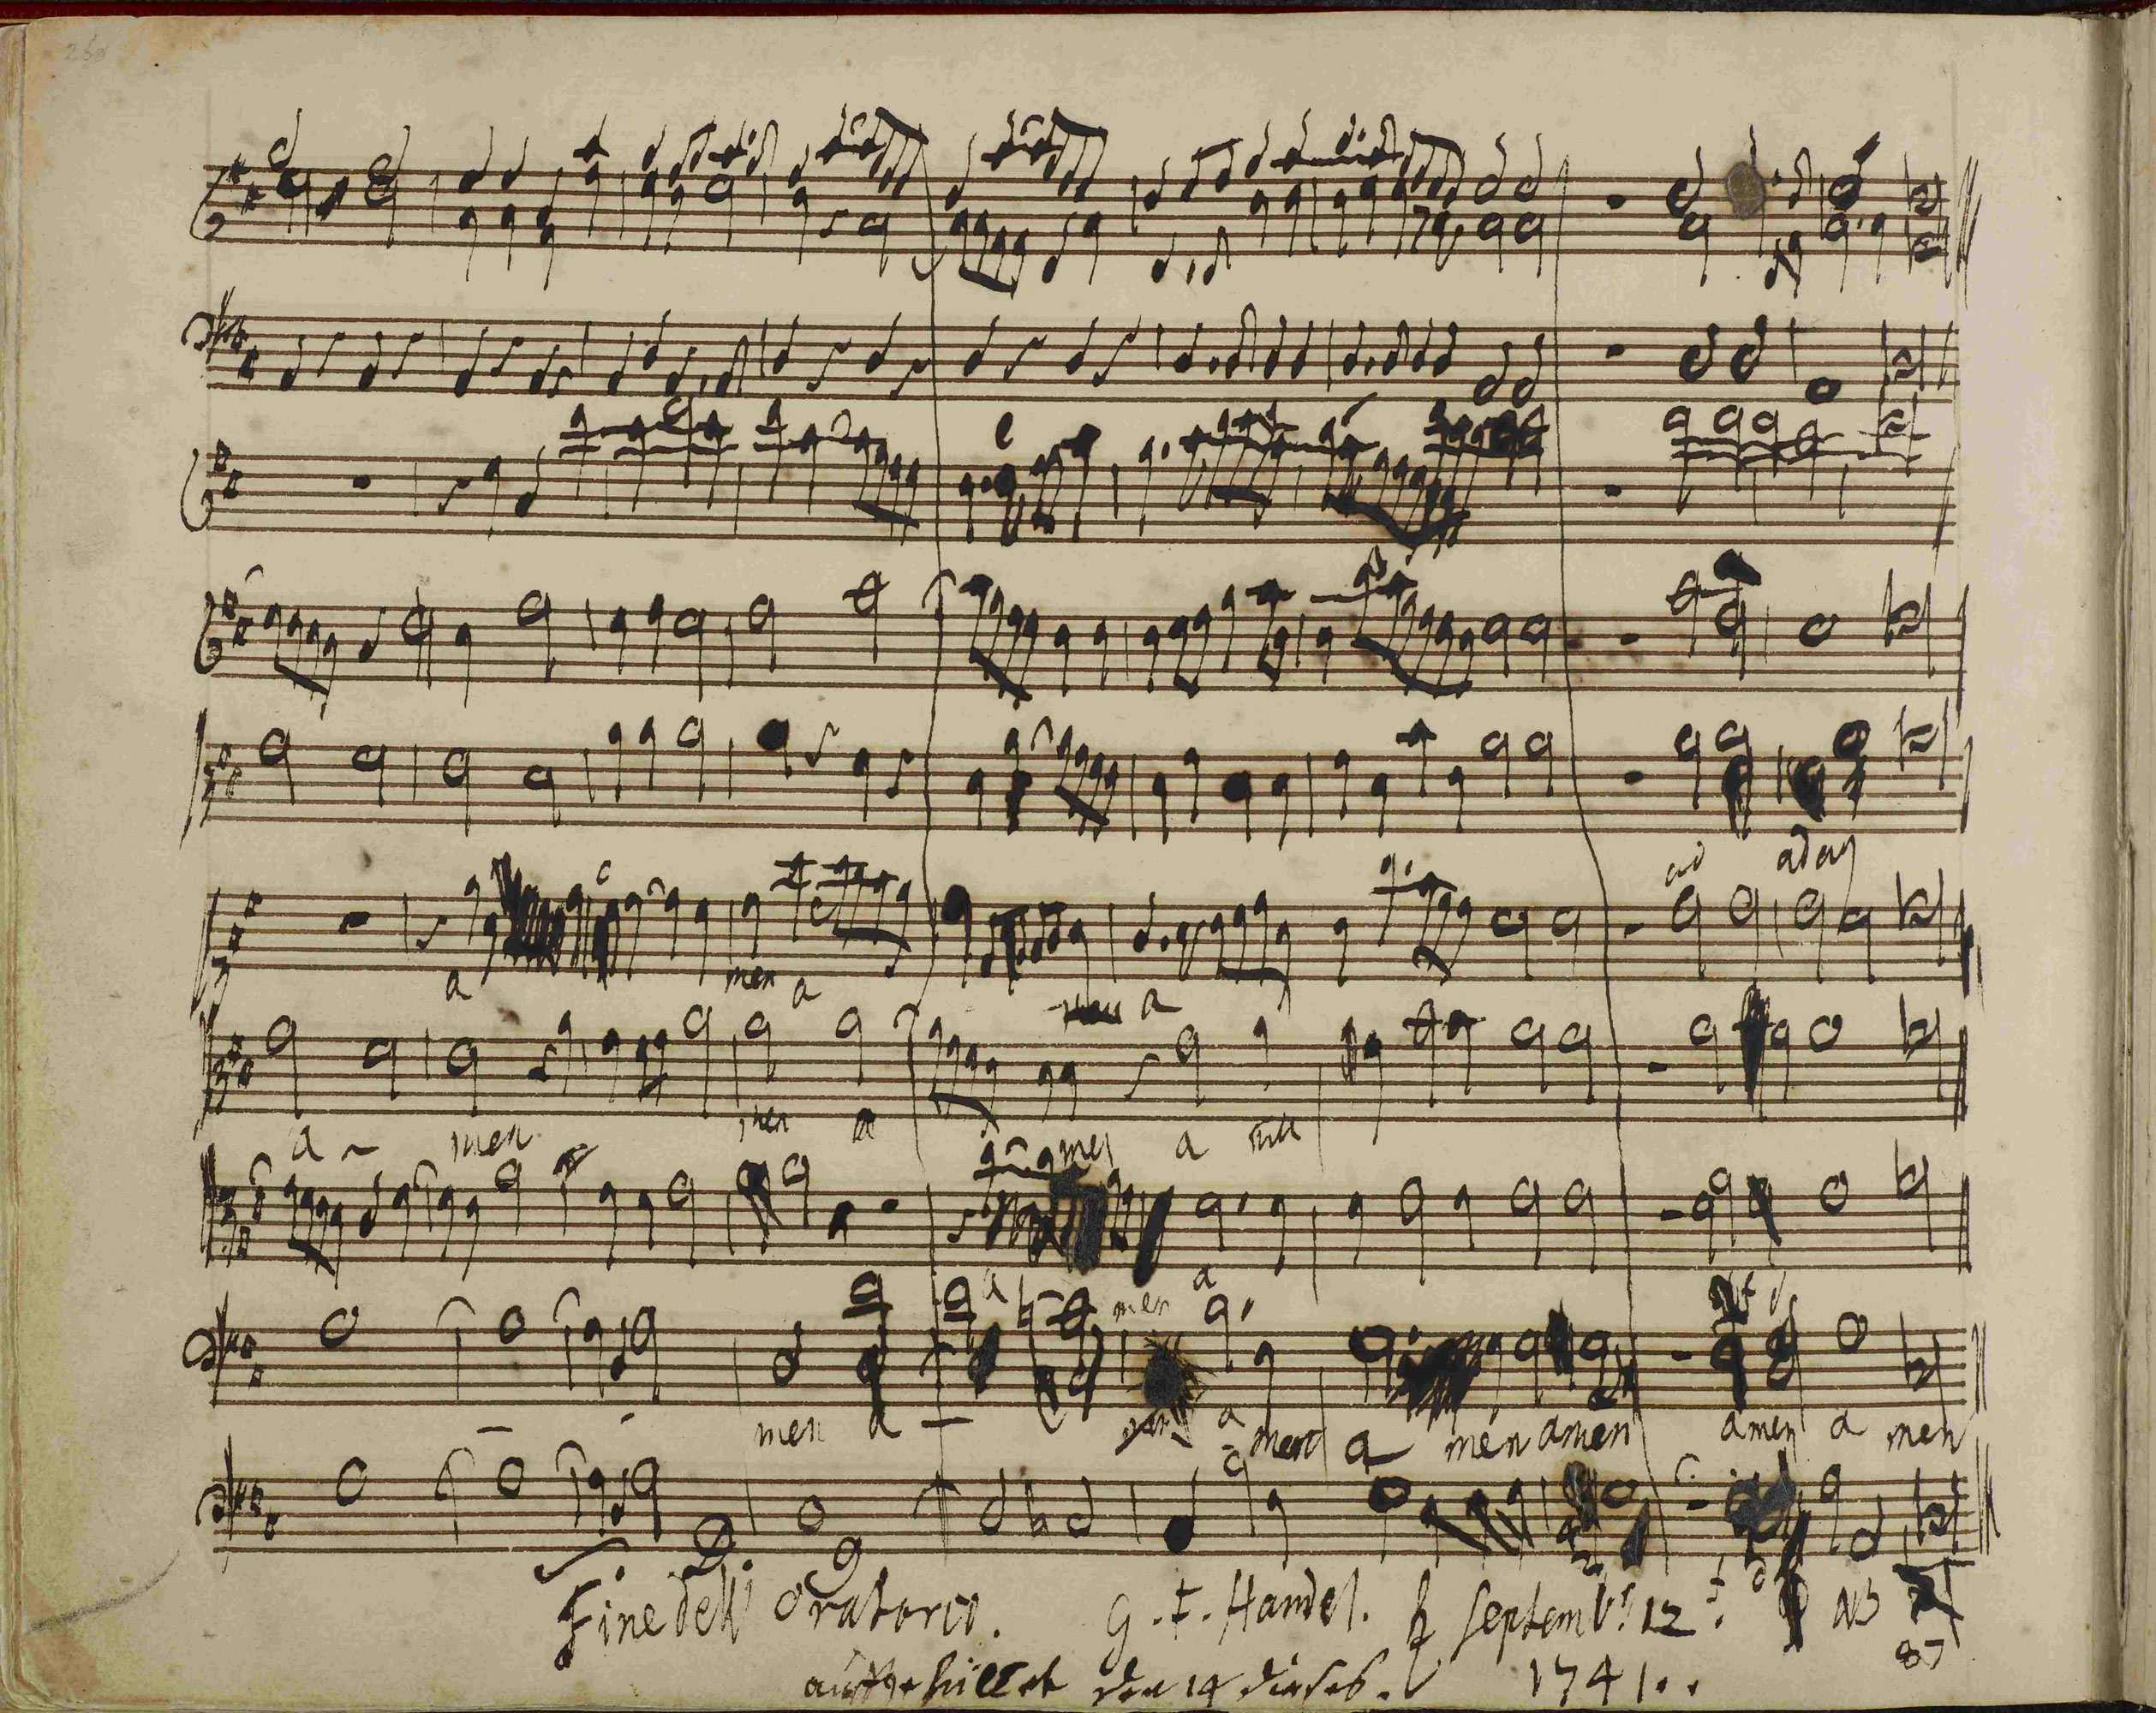 260
ad adag
a men a
men a
a ~ men men a
men a men
a men a
men a men a men amen amen a men
Fine dell' Oratorio. G. F. Handel. ♄ Septembr. 12
ausgefüllet den 14 dieses. 1741..